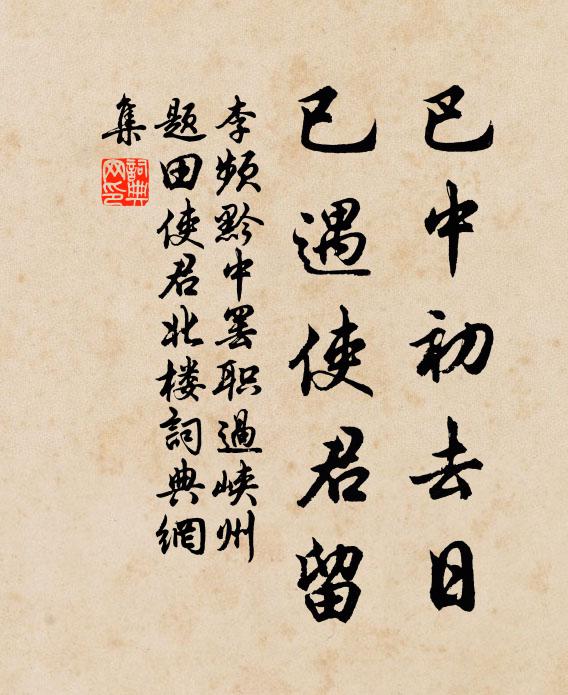 巴中初去日
已遇使君留
李频黔中罢职過峡州
题田使君北楼詞典網
集
詞典
网印